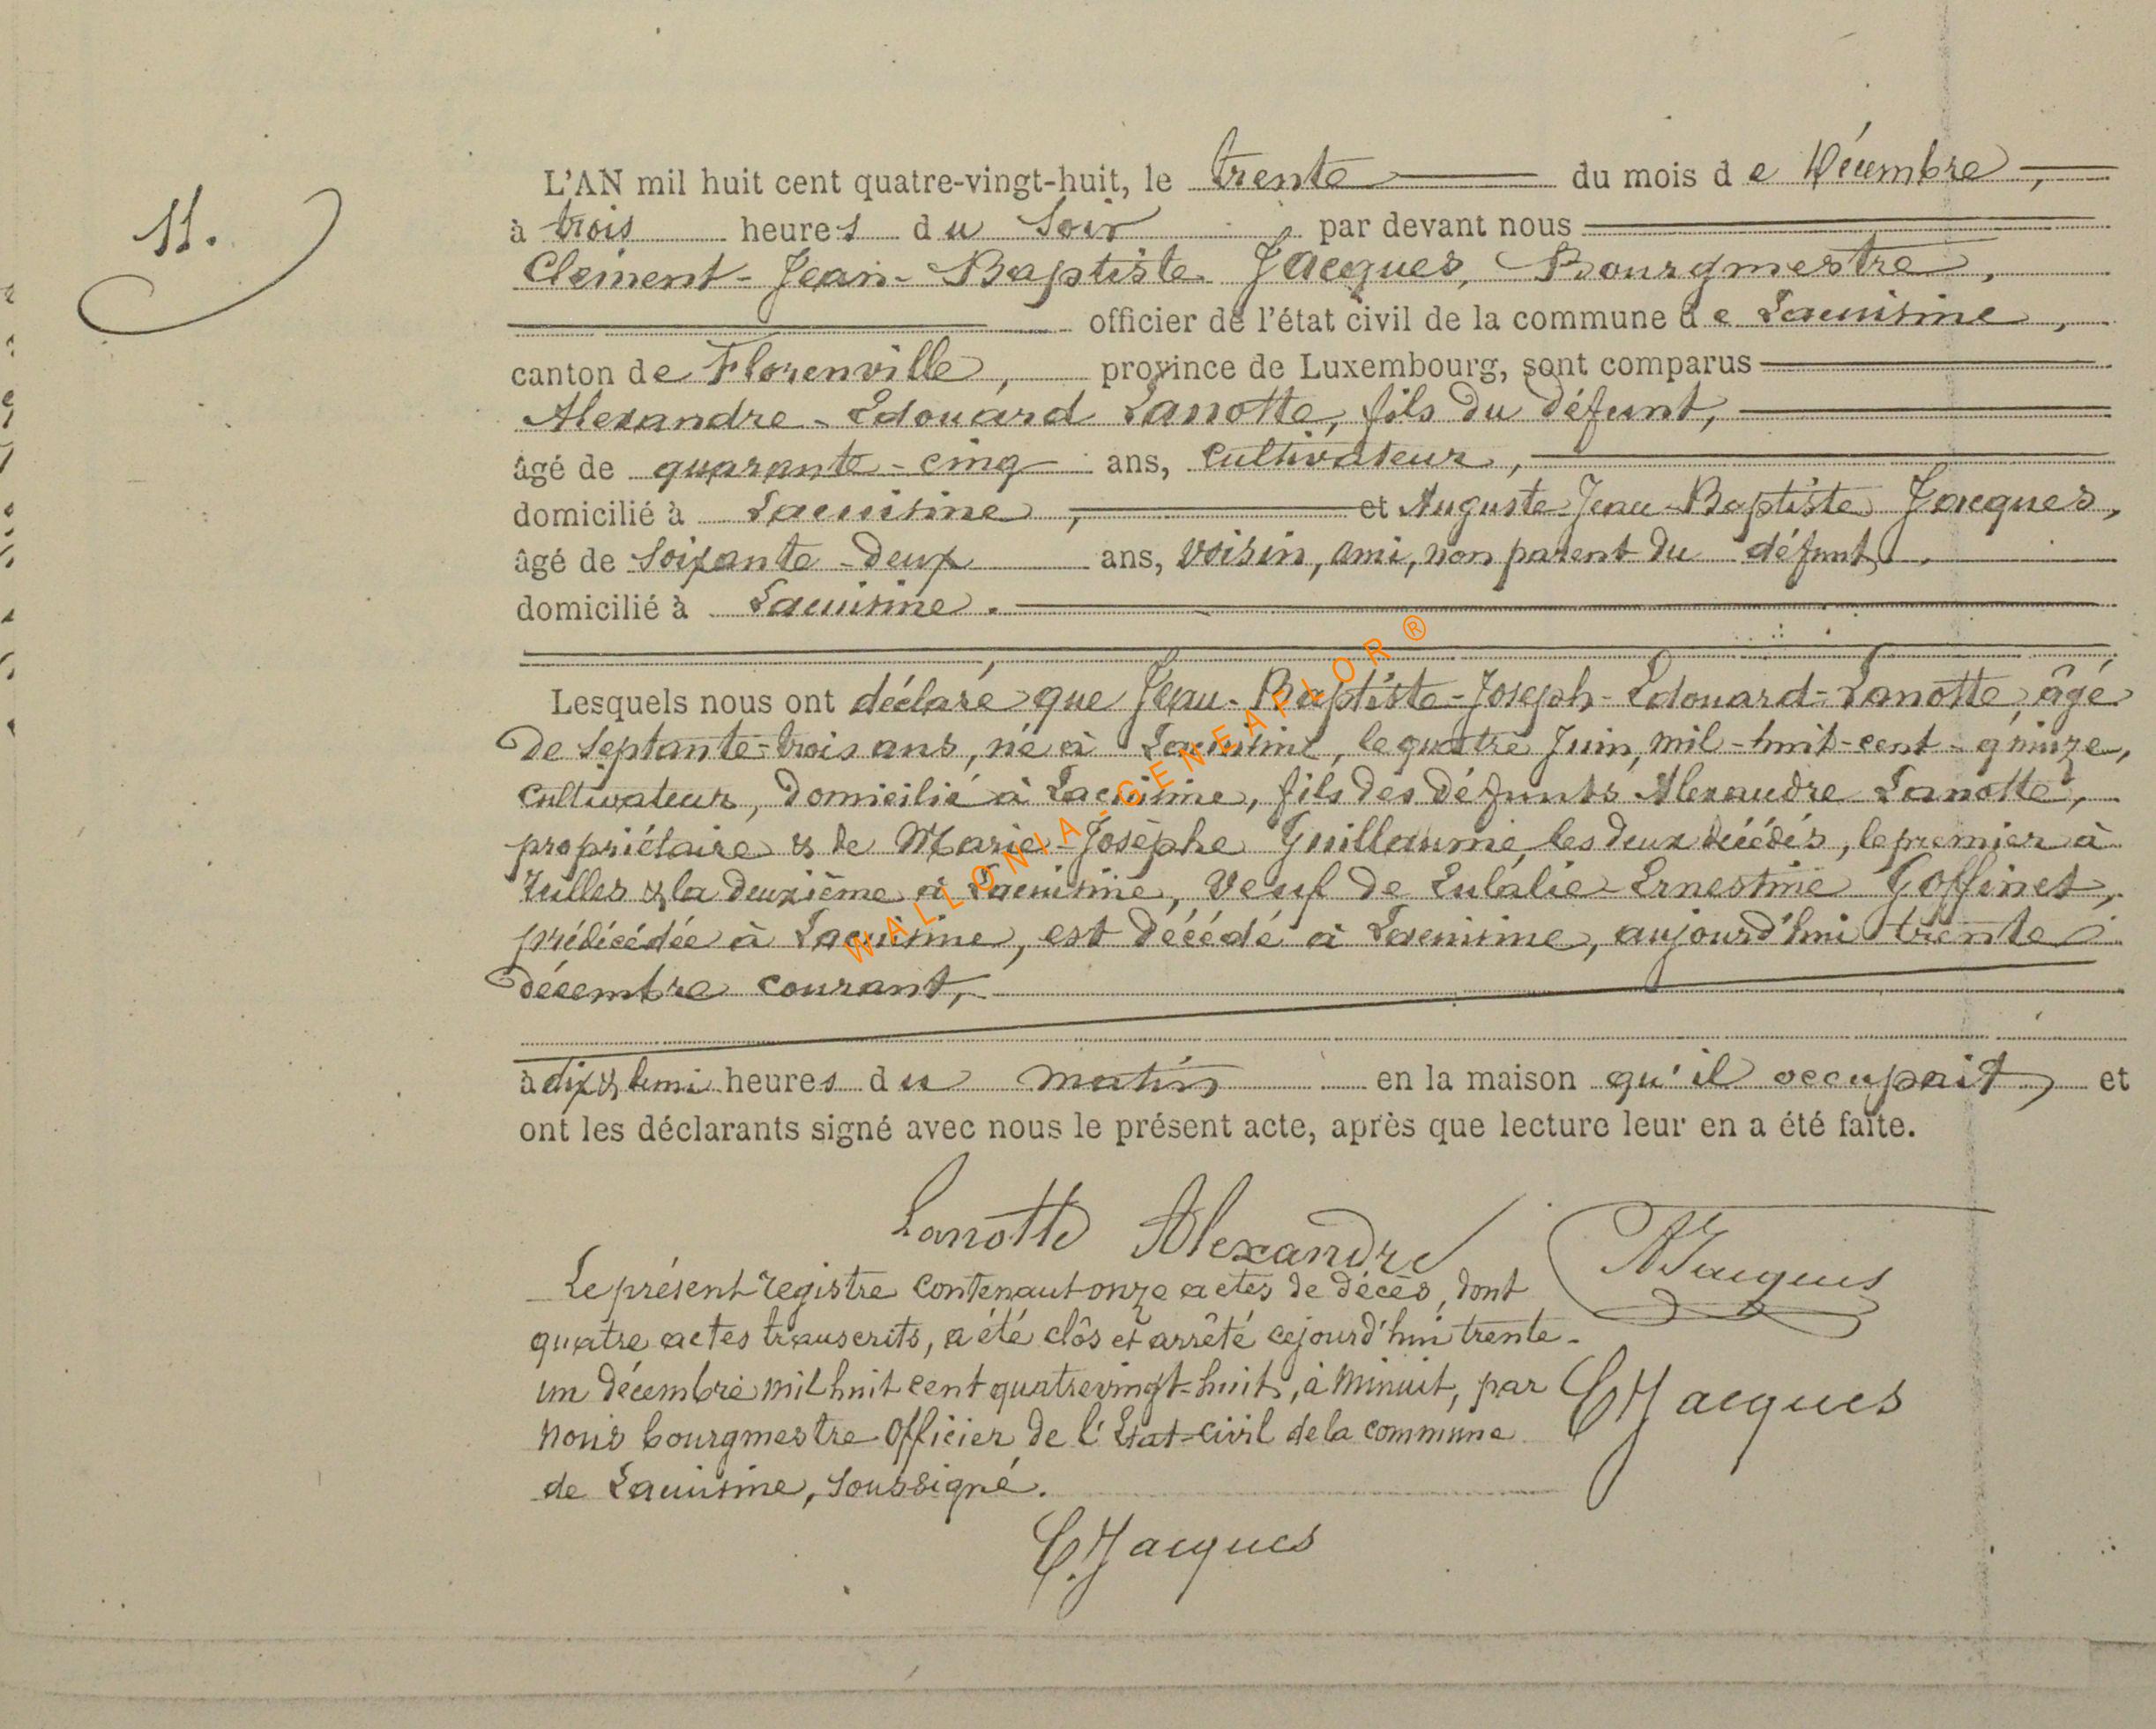 11.
L'AN mil huit cent quatre-vingt-huit, le trente du mois de Décembre,
à trois heures du soir par devant nous
Clément-Jean-Baptiste Jacques, Bourgmestre,
officier de l'état civil de la commune de Lacuisine,
canton de Florenville, province de Luxembourg, sont comparus
Alexandre-Edouard Lanotte, fils du défunt,
âgé de quarante-cinq ans, cultivateur,
domicilié à Lacuisine, et Auguste-Jean-Baptiste Jacques,
âgé de soixante-deux ans, voisin, ami, non parent du défunt,
domicilié à Lacuisine.
Lesquels nous ont déclaré que Jean-Baptiste-Joseph-Edouard-Lanotte, âgé
de septante-trois ans, né à Lacuisine, le quatre Juin, mil-huit-cent-quinze,
cultivateur, domicilié à Lacuisine, fils des défunts Alexandre Lanotte,
propriétaire & de Marie-Josèphe Guillaume, les deux décédés, le premier à
& la deuxième à Lacuisine, veuf de Eulalie-Ernestine Goffinet,
prédécédée à Lacuisine, est décédé à Lacuisine, aujourd'hui trente
décembre courant,
à dix & demi heures du matin en la maison qu'il occupait, et
ont les déclarants signé avec nous le présent acte, après que lecture leur en a été faite.
Lanotte Alexandre
AJacques
Le présent registre contenant onze actes de décès, dont
quatre actes transcrits, a été clôs et arrêté cejourd'hui trente-
un décembre mil huit cent quatrevingt-huit, à minuit, par
CJacques
nous bourgmestre officier de l'Etat-civil de la commune
de Lacuisine, soussigné.
C.Jacques
WALLONIA-GENEAFLOR®